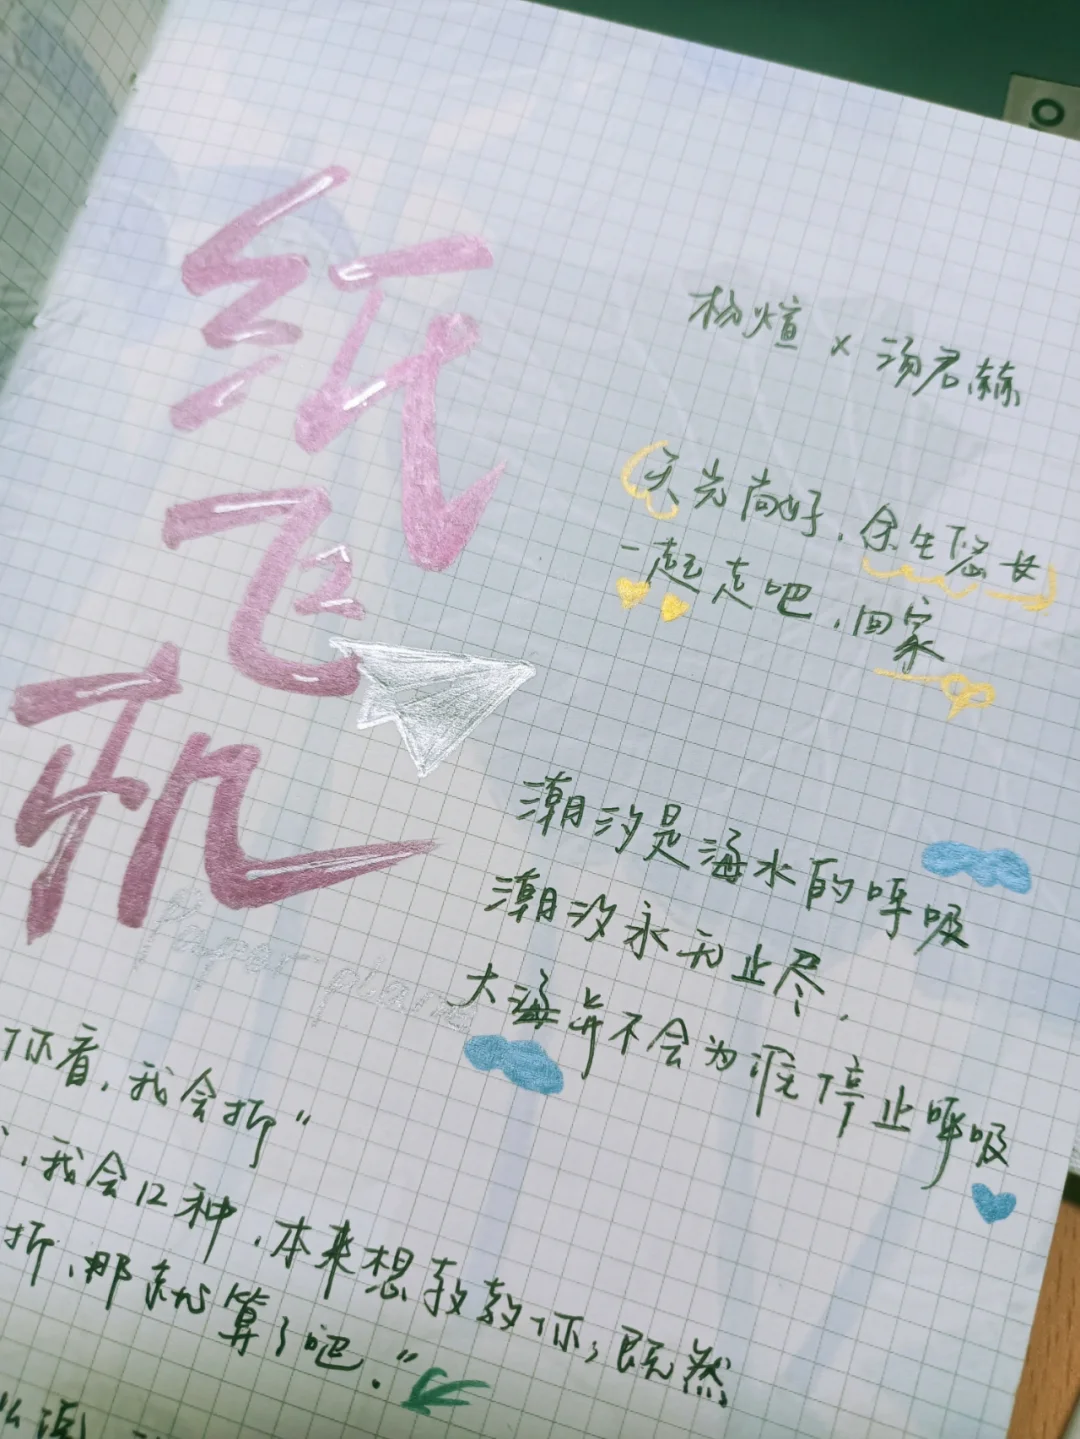 纸飞机
杨煊 × 汤君赫
天光尚好，余生悠长
一起走吧，回家
潮汐是海水的呼吸
潮汐永无止尽，
大海并不会为谁停止呼吸
你看，我会折”
，我会12种，本来想教教你，既然
折，那就算了吧。”